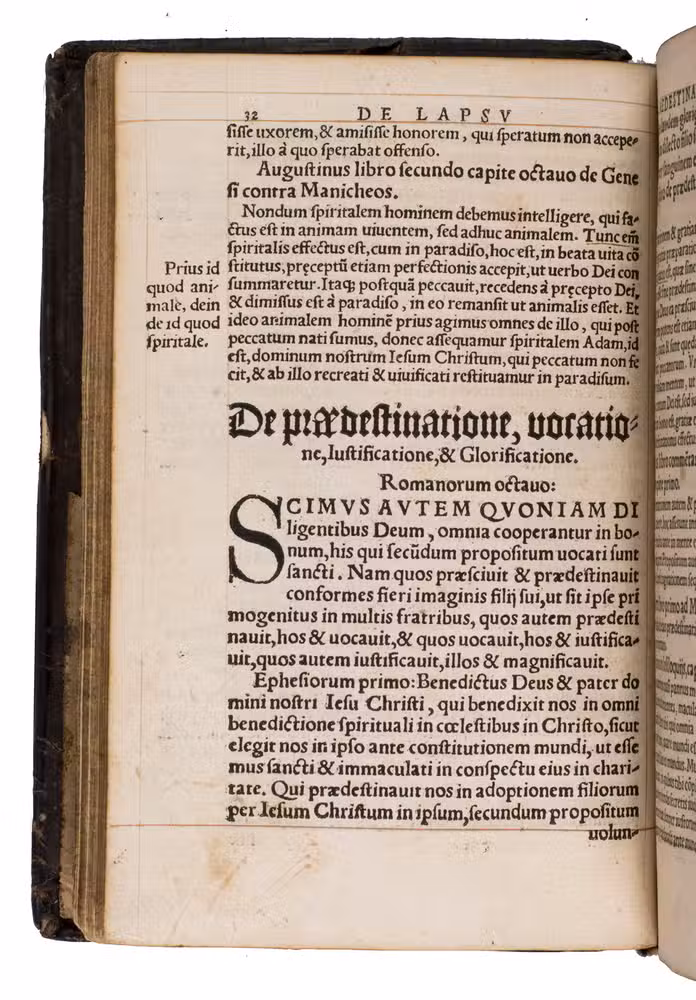 32 DE LAPSV
ſiſſe uxorem, & amiſiſſe honorem, qui ſperatum non accepe-
rit, illo à quo ſperabat offenſo.
Auguſtinus libro ſecundo capite octauo de Gene
ſi contra Manicheos.
Nondum ſpiritalem hominem debemus intelligere, qui fa-
ctus eſt in animam uiuentem, ſed adhuc animalem. Tunc em̃
ſpiritalis effectus eſt, cum in paradiſo, hoc eſt, in beata uita cõ
ſtitutus, pręceptũ etiam perfectionis accepit, ut uerbo Dei con
ſummaretur. Itaq; poſtquã peccauit, recedens à pręcepto Dei,
& dimiſſus eſt à paradiſo, in eo remanſit ut animalis eſſet. Et
ideo animalem hominẽ prius agimus omnes de illo, qui poſt
peccatum nati ſumus, donec aſſequamur ſpiritalem Adam, id
eſt, dominum noſtrum Ieſum Chriſtum, qui peccatum non fe
cit, & ab illo recreati & uiuificati reſtituamur in paradiſum.
Prius id
quod ani-
male, dein
de id quod
ſpiritale.
De prædeſtinatione, uocatio-
ne, Iuſtificatione, & Glorificatione.
Romanorum octauo:
SCIMVS AVTEM QVONIAM DI
ligentibus Deum, omnia cooperantur in bo-
num, his qui ſecũdum propoſitum uocati ſunt
ſancti. Nam quos præſciuit & prædeſtinauit
conformes fieri imaginis filij ſui, ut ſit ipſe pri
mogenitus in multis fratribus, quos autem prædeſti
nauit, hos & uocauit, & quos uocauit, hos & iuſtifica-
uit, quos autem iuſtificauit, illos & magnificauit.
Epheſiorum primo: Benedictus Deus & pater do
mini noſtri Ieſu Chriſti, qui benedixit nos in omni
benedictione ſpirituali in cœleſtibus in Chriſto, ſicut
elegit nos in ipſo ante conſtitutionem mundi, ut eſſe
mus ſancti & immaculati in conſpectu eius in chari-
tate. Qui prædeſtinauit nos in adoptionem filiorum
per Ieſum Chriſtum in ipſum, ſecundum propoſitum
uolun-